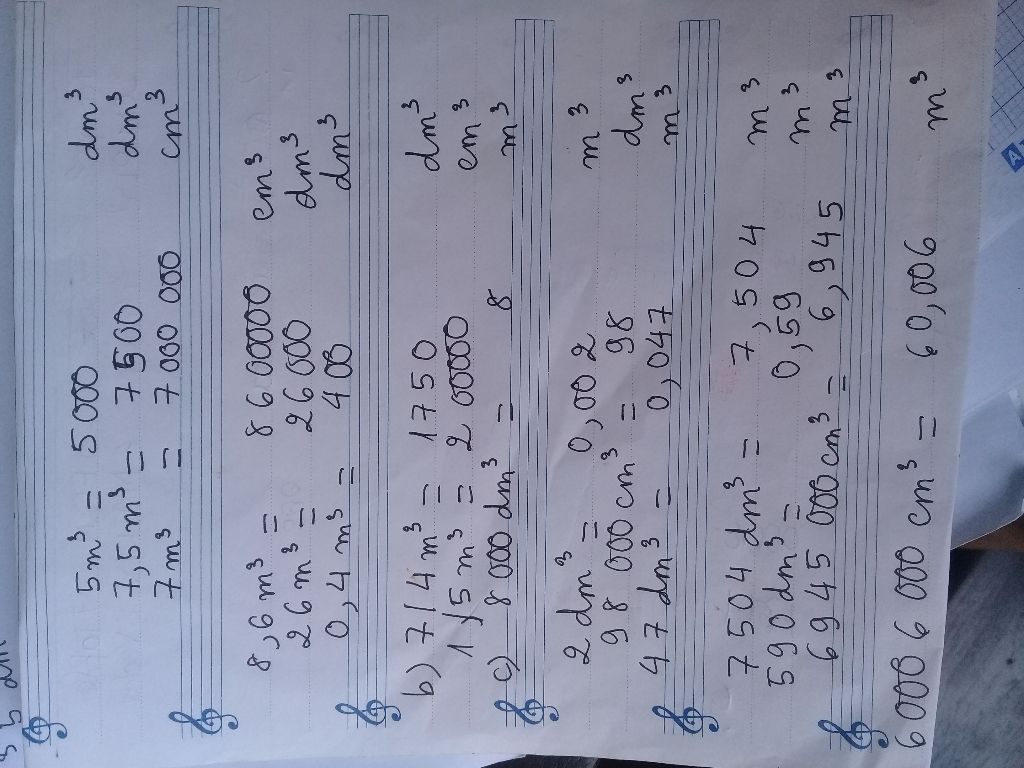 5m³ = 5000 dm³
7,5m³ = 7500 dm³
7m³ = 7000 000 cm³
8,6m³ = 8600000 cm³
26m³ = 26000 dm³
0,4m³ = 400 dm³
b) 7/4m³ = 1750 dm³
1/5m³ = 200000 cm³
c) 8000dm³ = 8 m³
2dm³ = 0,002 m³
98000cm³ = 98 dm³
47dm³ = 0,047 m³
7504 dm³ = 7,504 m³
590dm³ = 0,59 m³
6945000cm³ = 6,945 m³
60006000 cm³ = 60,006 m³